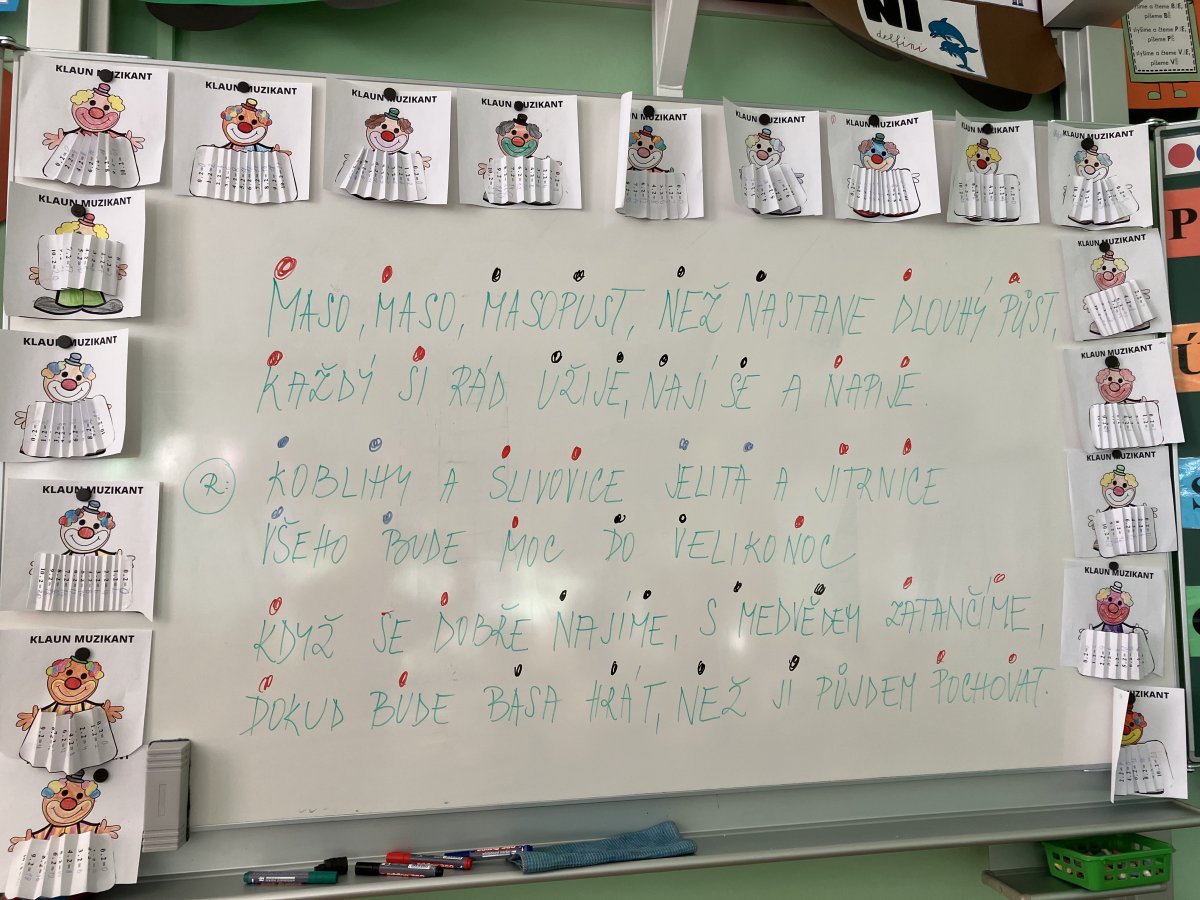 NI
delfíni
slyšíme a čteme BJE,
píšeme BĚ
slyšíme a čteme PJE,
píšeme PĚ
slyšíme a čteme VJE,
píšeme VĚ
KLAUN MUZIKANT
KLAUN MUZIKANT
KLAUN MUZIKANT
KLAUN MUZIKANT
MUZIKANT
KLAUN MUZIKANT
KLAUN MUZIKANT
KLAUN MUZIKANT
KLAUN MUZIKANT
KLAUN MUZIKANT
KLAUN MUZIKANT
KLAUN MUZIKANT
KLAUN MUZIKANT
KLAUN MUZIKANT
MASO, MASO, MASOPUST, NEŽ NASTANE DLOUHÝ PŮST,
KAŽDÝ SI RÁD UŽIJE, NAJÍ SE A NAPIJE.
R: KOBLIHY A SLIVOVICE JELITA A JITRNICE
VŠEHO BUDE MOC DO VELIKONOC
KDYŽ SE DOBŘE NAJÍME, S MEDVĚDEM ZATANČÍME,
DOKUD BUDE BASA HRÁT, NEŽ JI PŮJDEM POCHOVAT.
KLAUN MUZIKANT
KLAUN MUZIKANT
KLAUN MUZIKANT
KLAUN MUZIKANT
MUZIKANT
P
Ú
S